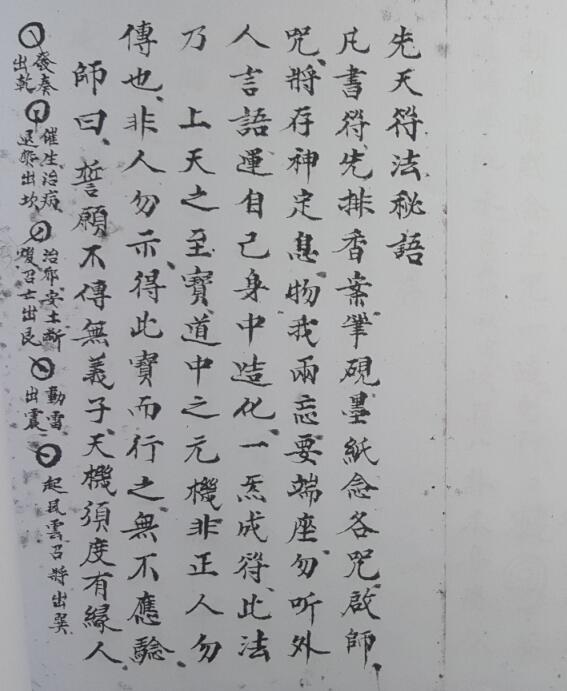 先天符法秘語
凡書符先排香案筆硯墨紙念各咒啟師、
咒、將存神定息、物我兩忘要端座勿听外
人言語運自己身中造化一炁成符、此法
乃 上天之至寶道中之元機非正人勿
傳也、非人勿示、得此寶而行之、無不應驗、
師曰、誓願不傳無義子、天機須度有緣人、
發奏
出乾
催生治病
退祭出坎
治邪安土斬
煞召士出艮
動雷
出震
起風雲召將出巽